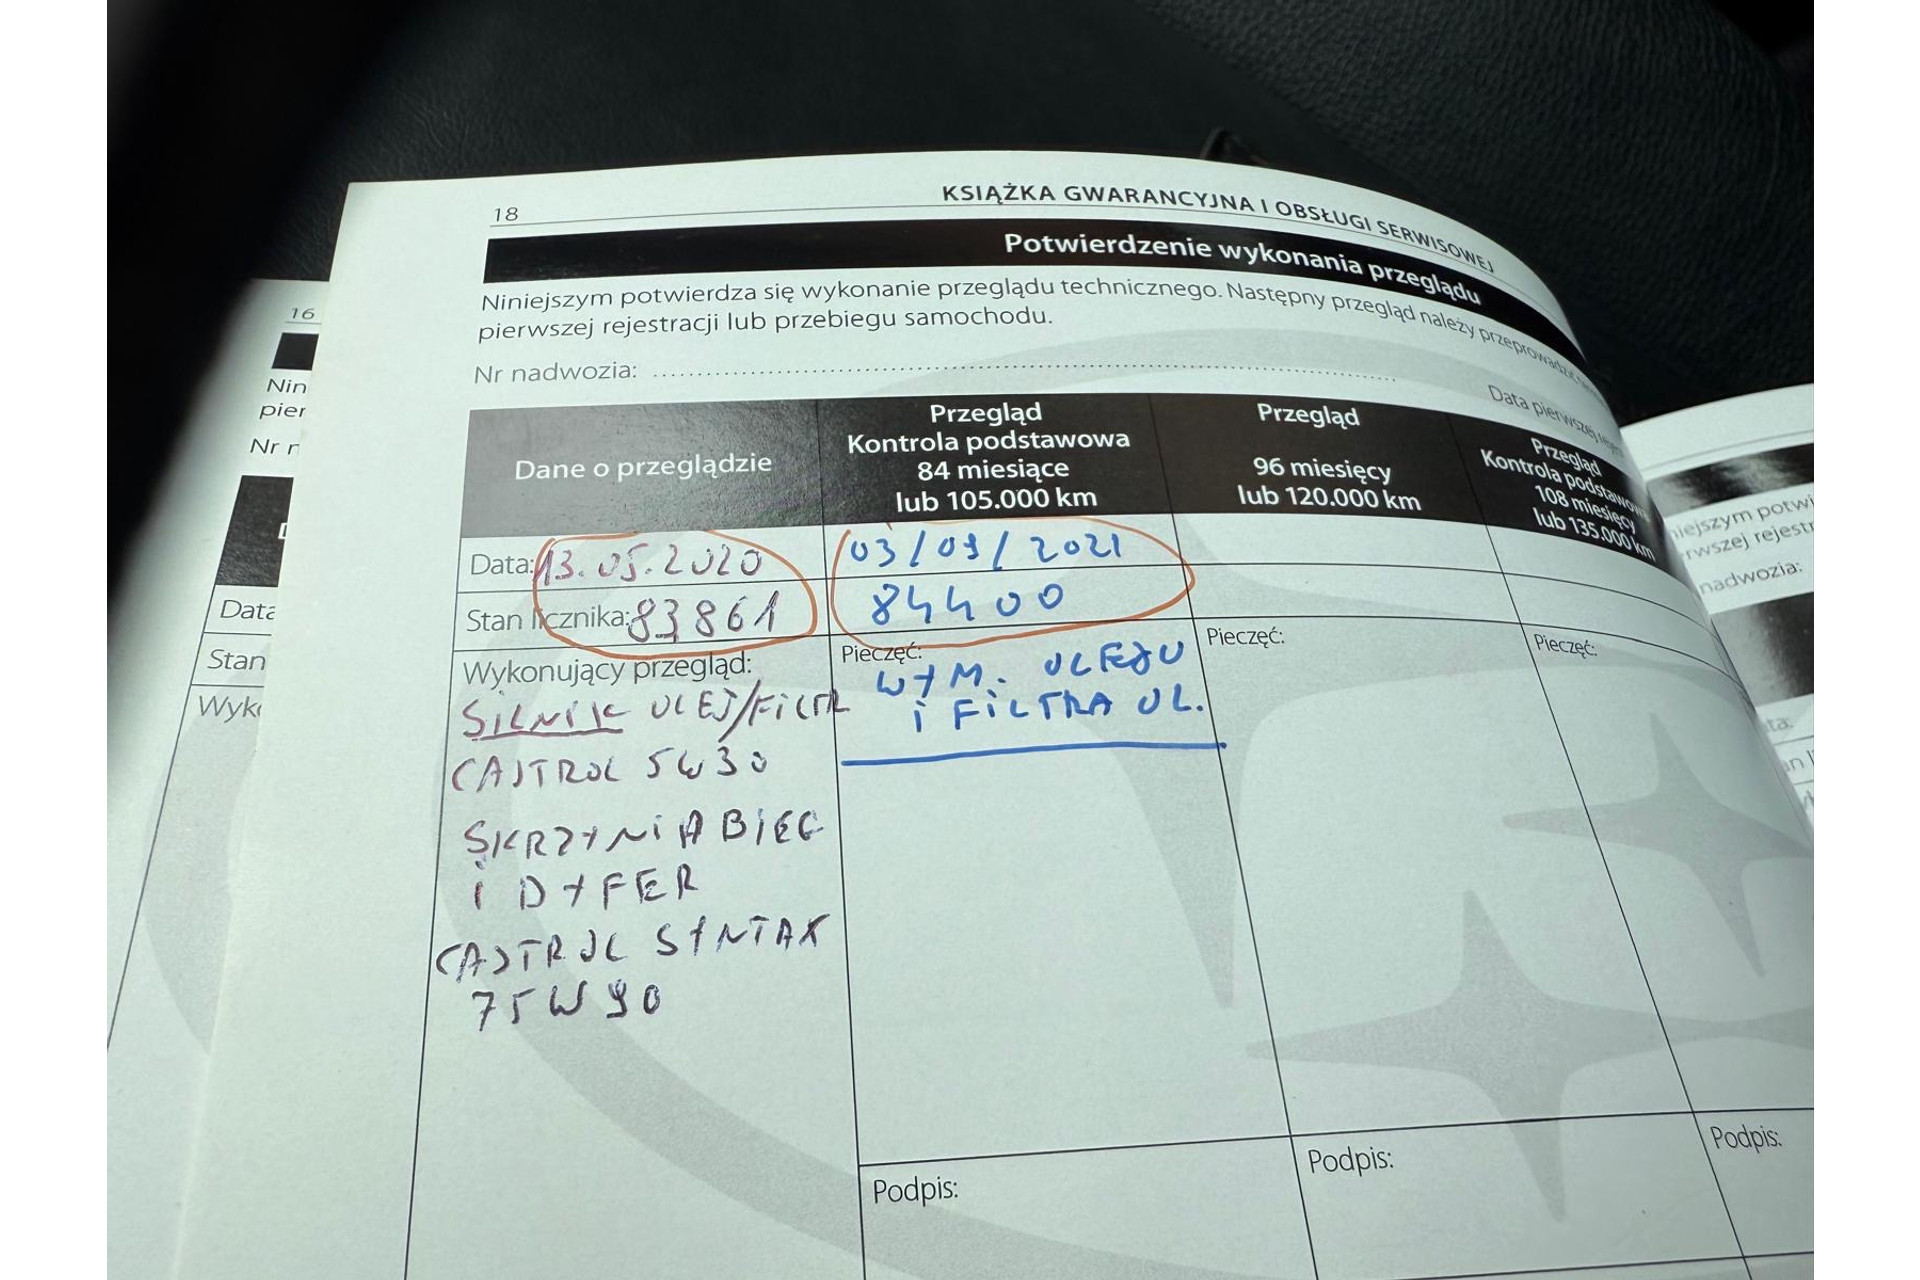 18
KSIĄŻKA GWARANCYJNA I OBSŁUGI SERWISOWEJ
Potwierdzenie wykonania przeglądu
Niniejszym potwierdza się wykonanie przeglądu technicznego. Następny przegląd należy przeprowadzić
pierwszej rejestracji lub przebiegu samochodu.
Nr nadwozia:
Data pierwszej
Dane o przeglądzie
Przegląd
Kontrola podstawowa
84 miesiące
lub 105.000 km
Przegląd
96 miesięcy
lub 120.000 km
Przegląd
Kontrola podstawowa
108 miesięcy
lub 135.000 km
Data: 13.05.2020
03/09/2021
Stan licznika: 83861
84400
Wykonujący przegląd:
SILNIK OLEJ/FILTR
CASTROL 5W30
SKRZYNIA BIEG
I DYFER
CASTROL SYNTAX
75W90
Pieczęć:
WYM. OLEJU
i FILTRA OL.
Pieczęć:
Pieczęć:
Podpis:
Podpis:
Podpis:
16
Nin
pier
Nr n
Data
Stan
Wyk
nadwozia: